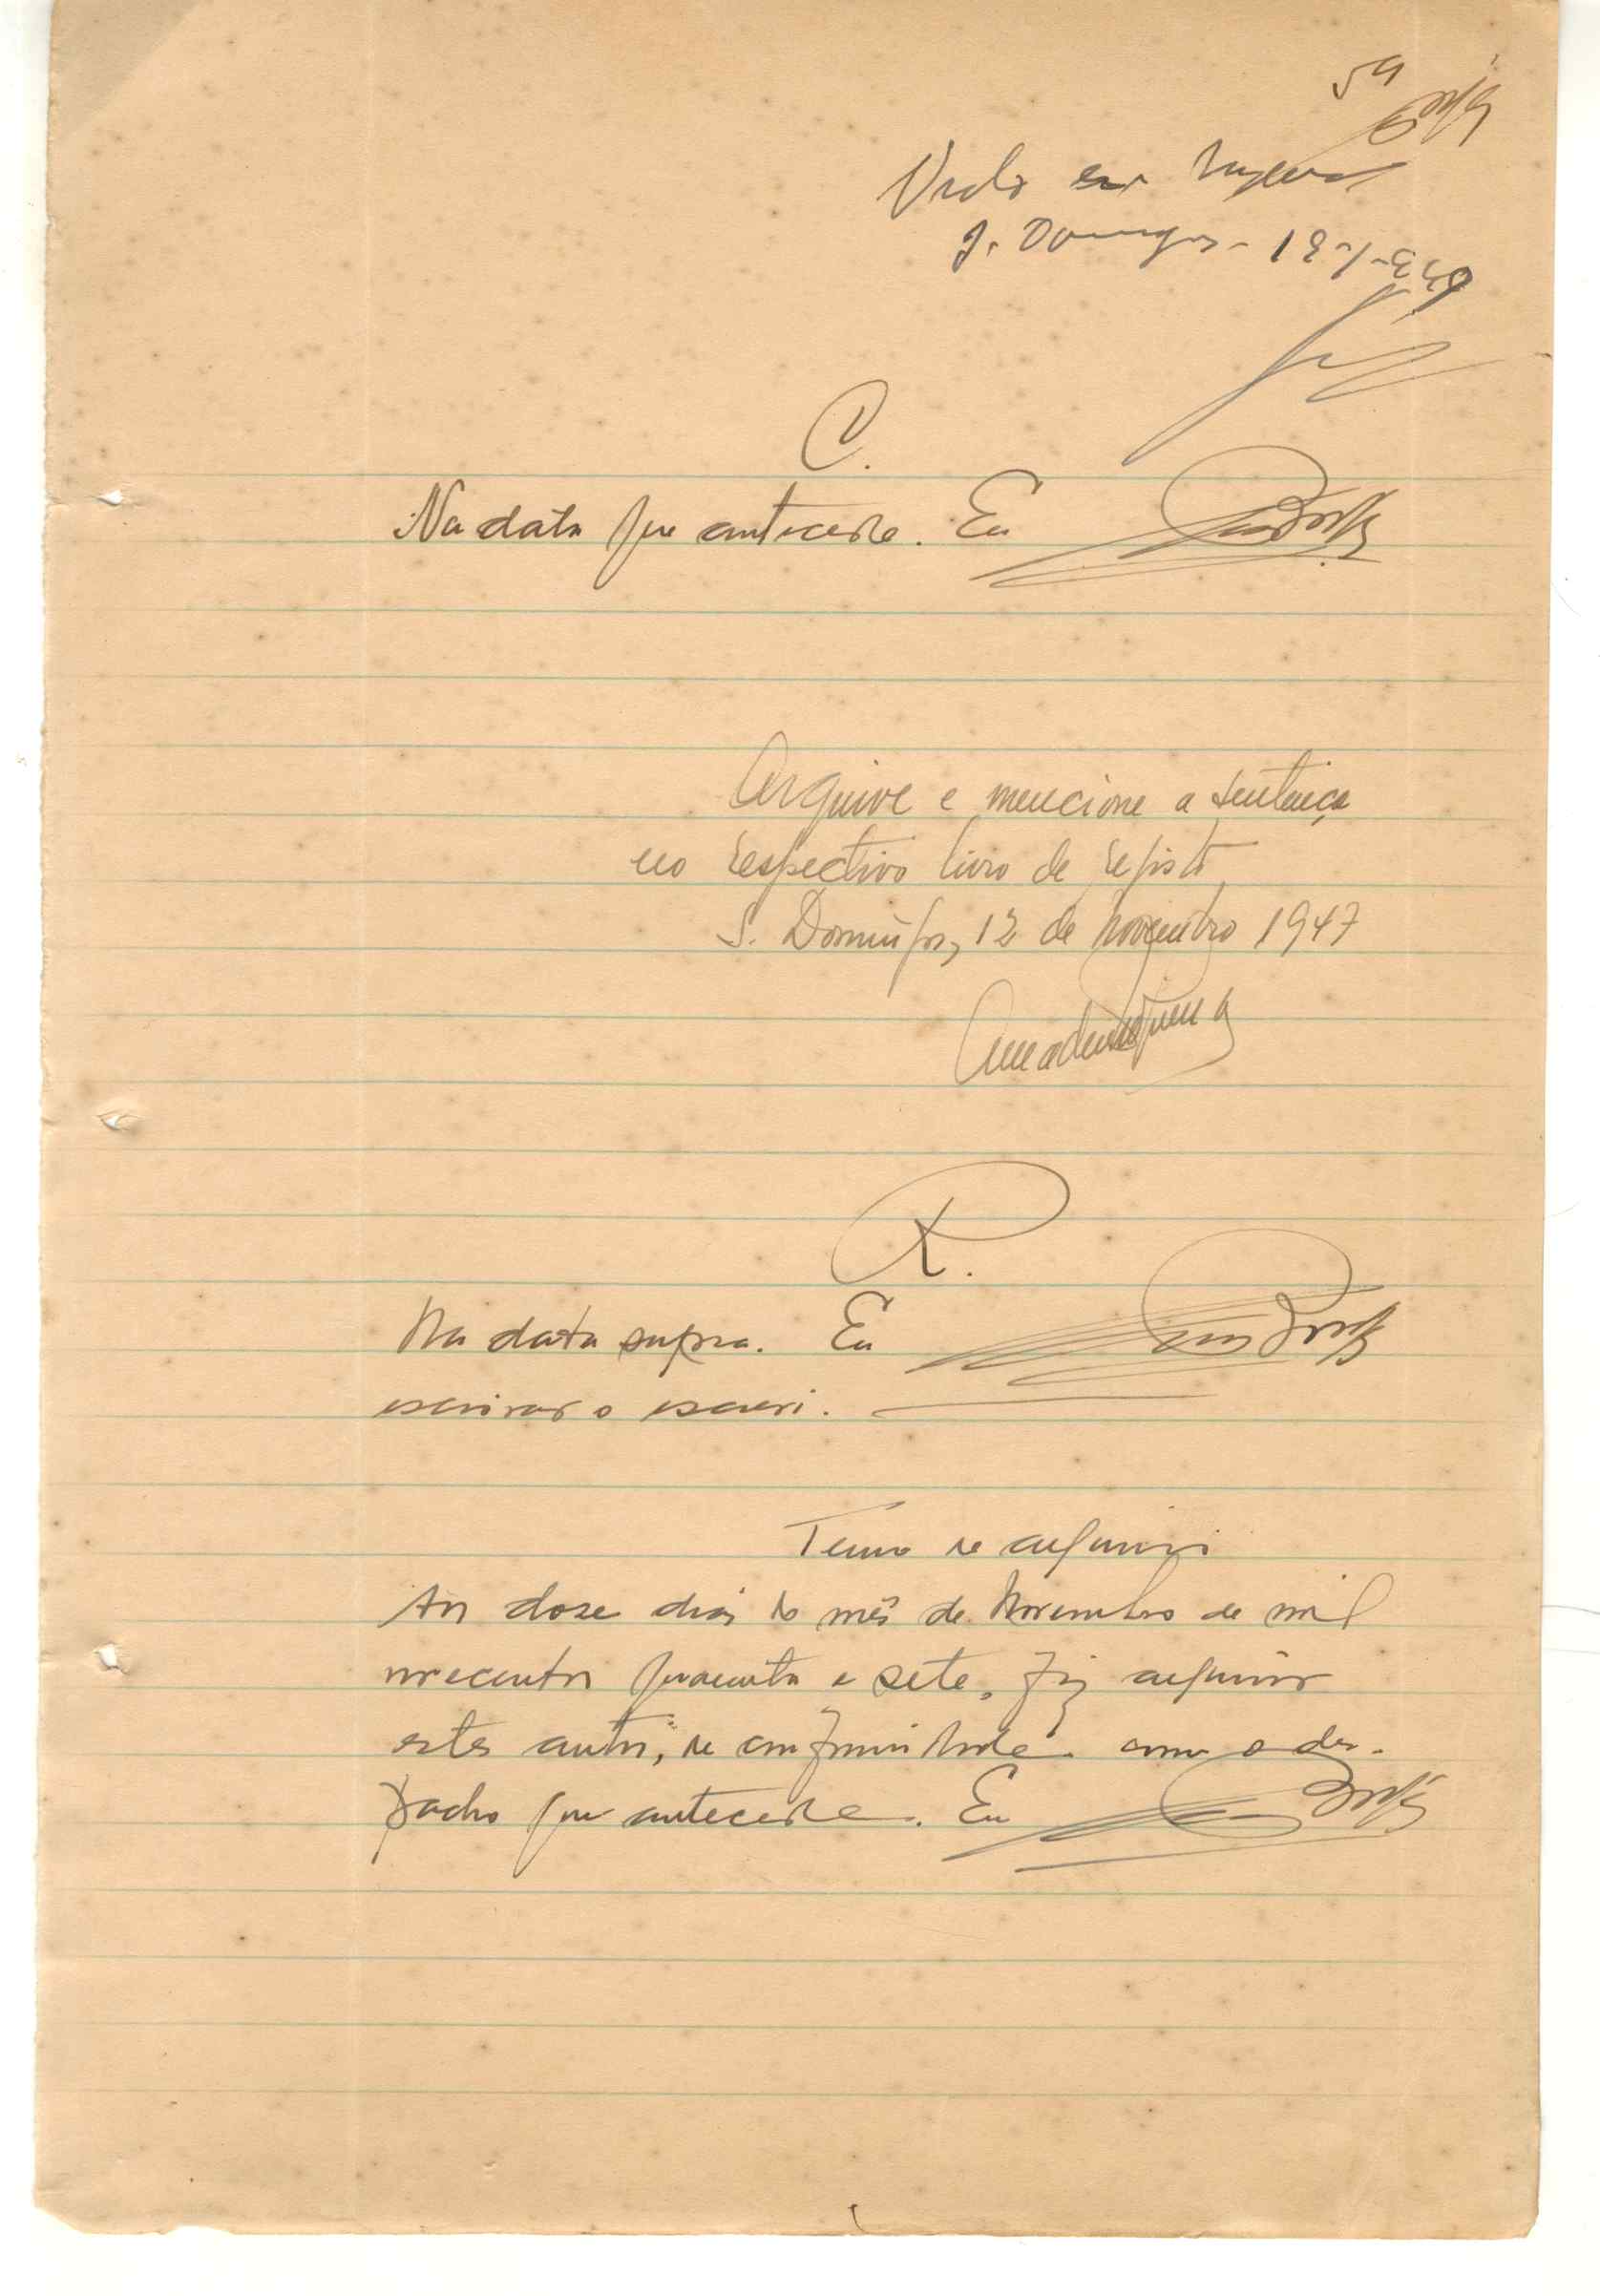 59
Visto em
S. Domingos -
C.
Na data que antecede. Eu
Arquive e mencione a sentença
no respectivo livro de registo
S. Domingos, 12 de novembro 1947
R.
Na data supra. Eu
escrivão o escrevi.
Termo de arquivo
Aos doze dias do mês de Novembro de mil
novecentos quarenta e sete, fiz arquivar
estes autos, de conformidade com o des-
pacho que antecede. Eu